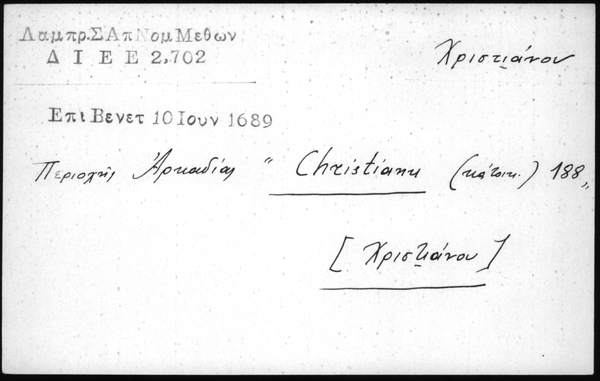 Λαμπρ.ΣΑπΝομΜεθων
Δ Ι Ε Ε 2,702
Χριστιάνου
ΕπιΒενετ 10Ιουν 1689
Περιοχῆς Ἀρκαδίας " Christianu (κάτοικ.) 188 "
[Χριστιάνου]